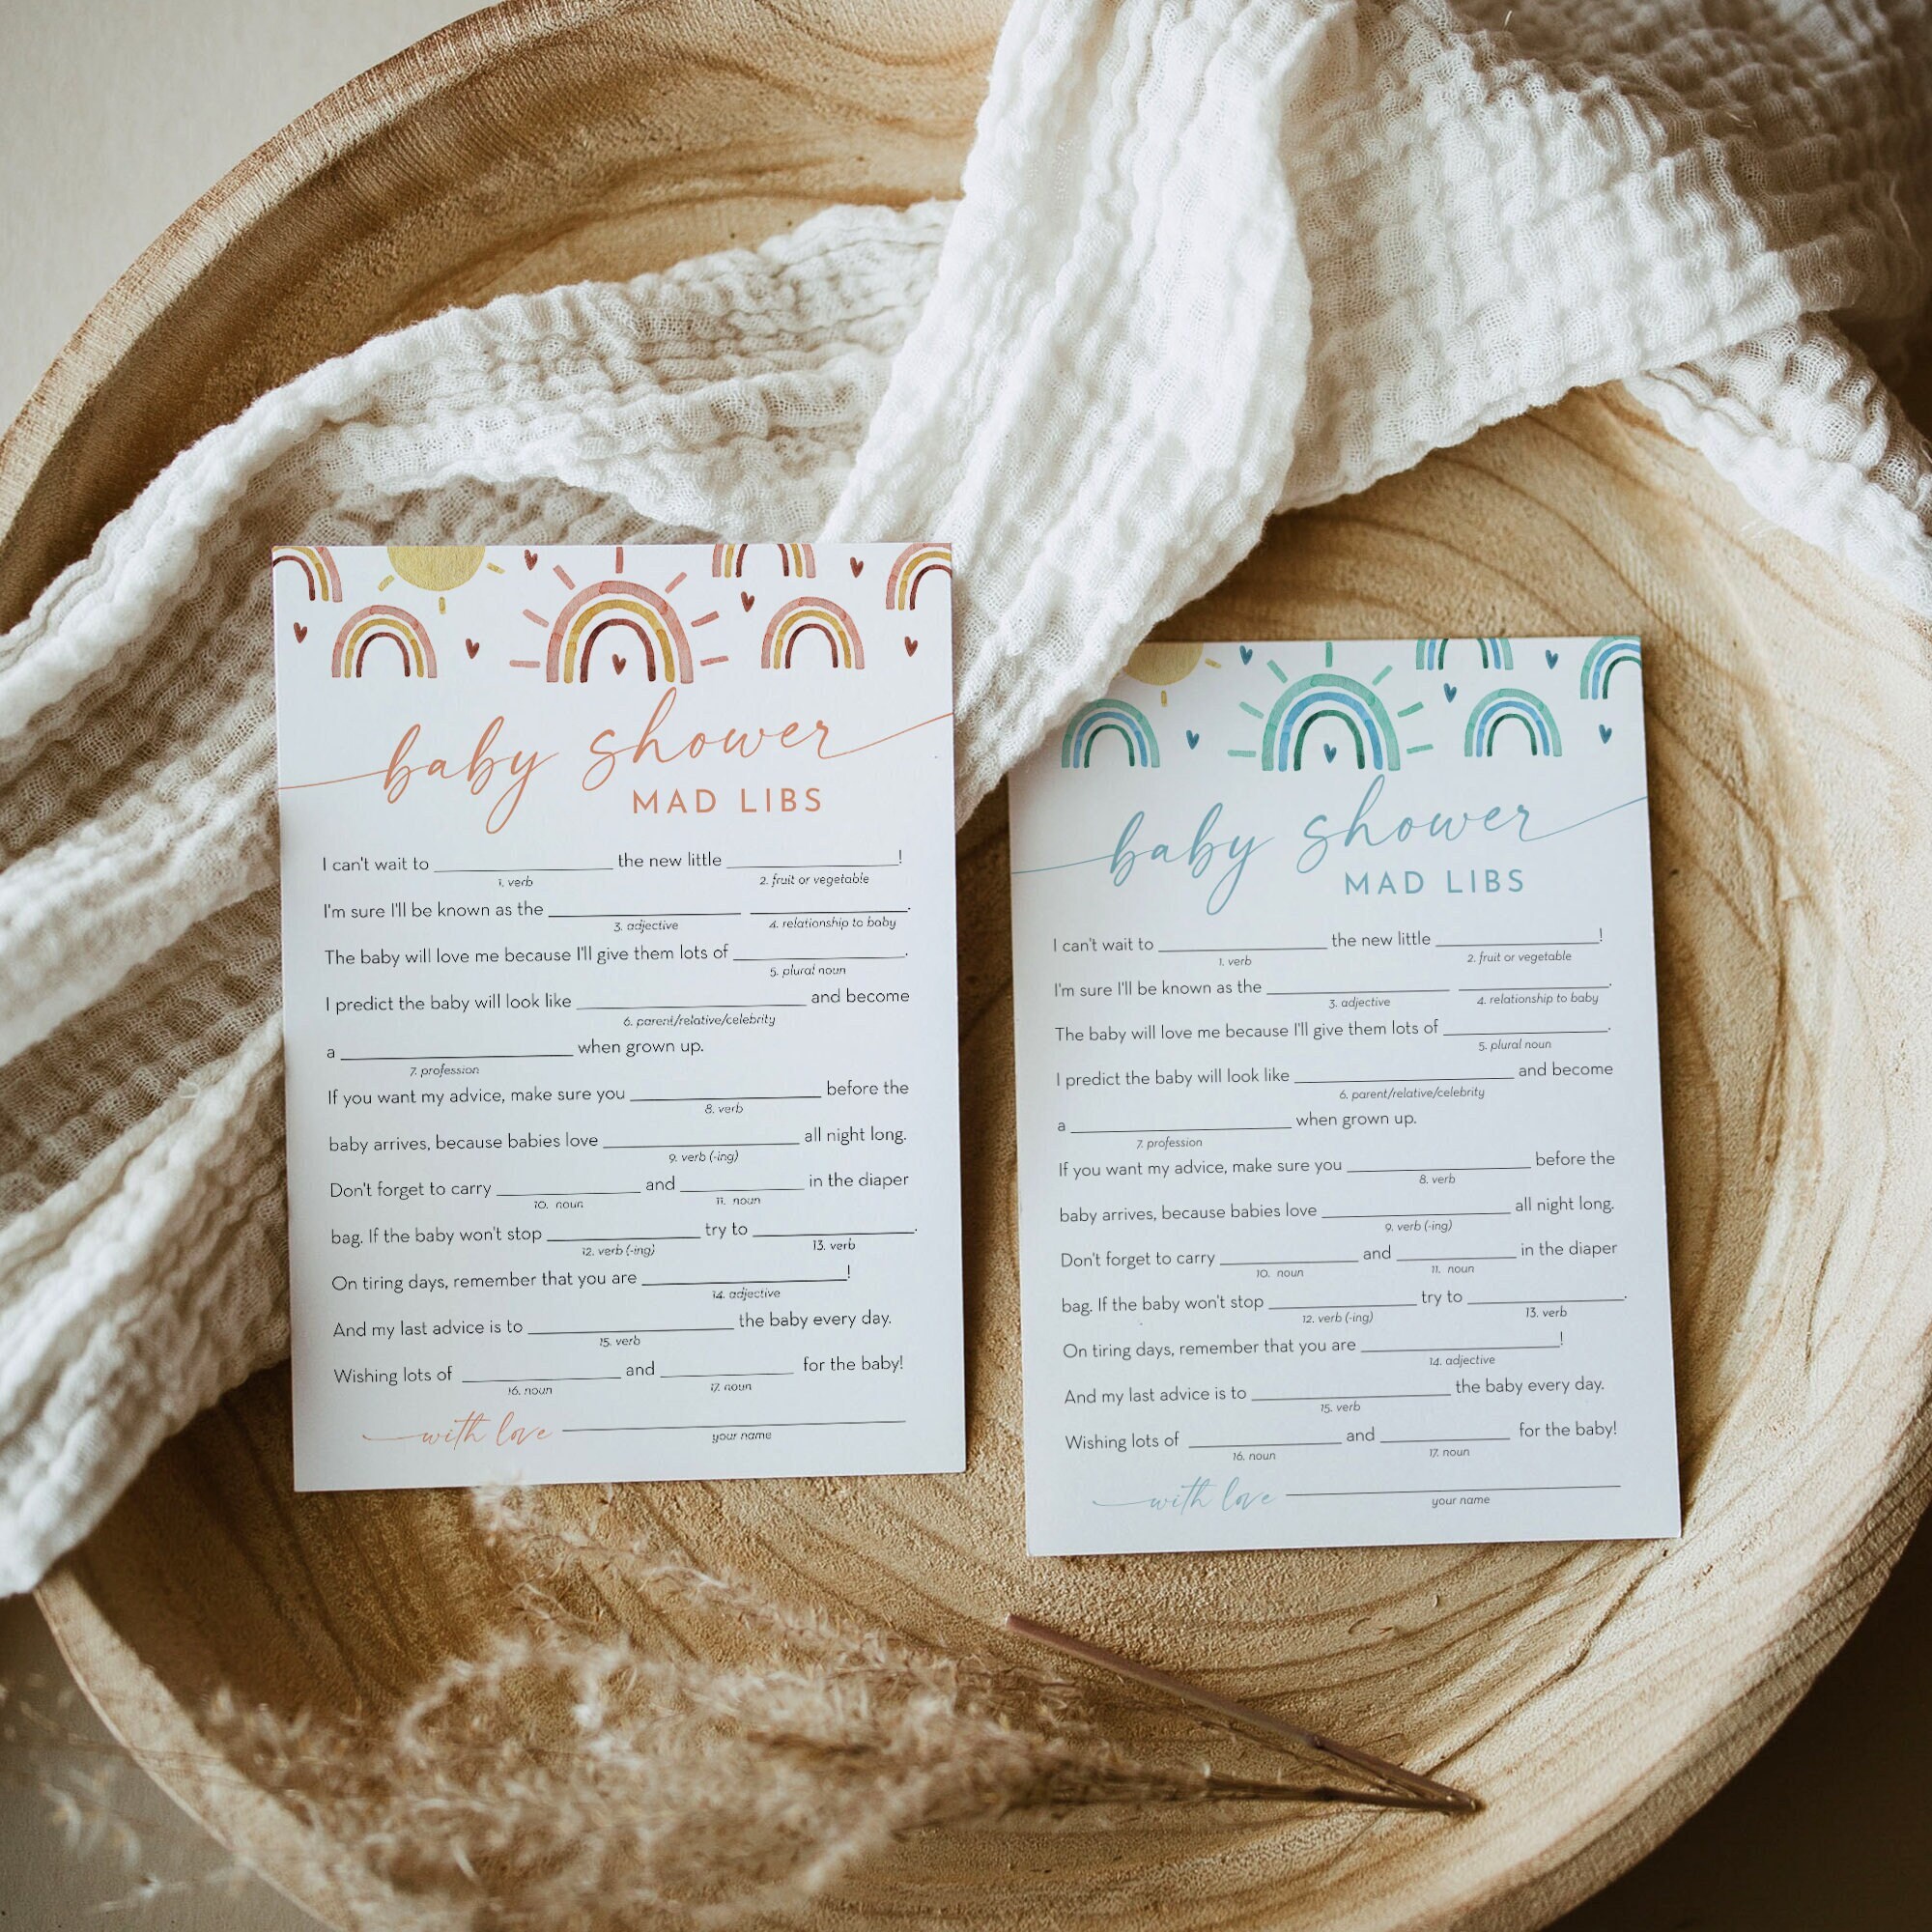 baby shower
MAD LIBS
I can't wait to ____ the new little ____!
1. verb 2. fruit or vegetable
I'm sure I'll be known as the ____ ____.
3. adjective 4. relationship to baby
The baby will love me because I'll give them lots of ____.
5. plural noun
I predict the baby will look like ____ and become
6. parent/relative/celebrity
a ____ when grown up.
7. profession
If you want my advice, make sure you ____ before the
8. verb
baby arrives, because babies love ____ all night long.
9. verb (-ing)
Don't forget to carry ____ and ____ in the diaper
10. noun 11. noun
bag. If the baby won't stop ____ try to ____.
12. verb (-ing) 13. verb
On tiring days, remember that you are ____!
14. adjective
And my last advice is to ____ the baby every day.
15. verb
Wishing lots of ____ and ____ for the baby!
16. noun 17. noun
with love ____
your name
baby shower
MAD LIBS
I can't wait to ____ the new little ____!
1. verb 2. fruit or vegetable
I'm sure I'll be known as the ____ ____.
3. adjective 4. relationship to baby
The baby will love me because I'll give them lots of ____.
5. plural noun
I predict the baby will look like ____ and become
6. parent/relative/celebrity
a ____ when grown up.
7. profession
If you want my advice, make sure you ____ before the
8. verb
baby arrives, because babies love ____ all night long.
9. verb (-ing)
Don't forget to carry ____ and ____ in the diaper
10. noun 11. noun
bag. If the baby won't stop ____ try to ____.
12. verb (-ing) 13. verb
On tiring days, remember that you are ____!
14. adjective
And my last advice is to ____ the baby every day.
15. verb
Wishing lots of ____ and ____ for the baby!
16. noun 17. noun
with love ____
your name